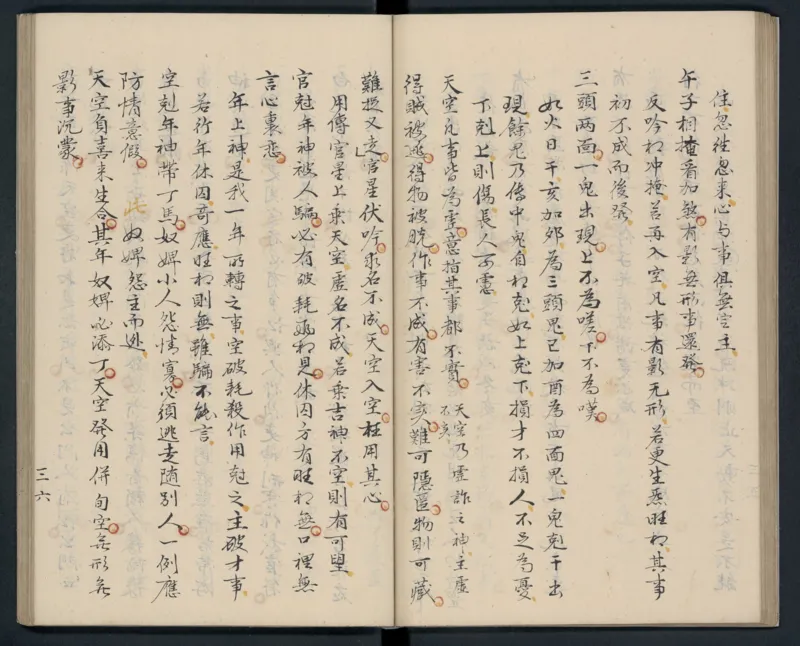 住忽往忽來心与事俱無定主
午子相掩看加煞有影無形事還發
反吟相冲掩若再入空凡事有影无形若更生炁旺相其事
初不成而後發
三頭两面一鬼出現上不為嗟下不為嘆
如火日干亥加卯為三頭鬼巳加酉為四面鬼一鬼剋干出
現餘鬼乃傳中鬼自相尅如上尅下損才不損人不足為憂
下剋上則傷長人可憲
天空凡事皆為虛意指其事都不實天空乃虛詐之神主虛不实
得賊被逃得物被脫作事不成有害不实難可隱匿物則可藏
難捉又逢官星伏吟求名不成天空入空枉用其心
用傳官星上乘天空虛名不成若乘吉神不空則有可望
官尅年神被人騙必有破耗遞相見休囚方有旺相無口裡無
言心裏悲
年上神是我一年所轉之事空破耗殺作用尅之主破才事
若行年休囚哥應旺相則無雖騙不能言
空剋年神帶丁馬奴婢小人怨情寡必須逃走隨別人一例應
防情意假 此奴婢怨主而逃
天空負喜來生合其年奴婢必添丁天空發用併旬空無形無
影事沉蒙
三六